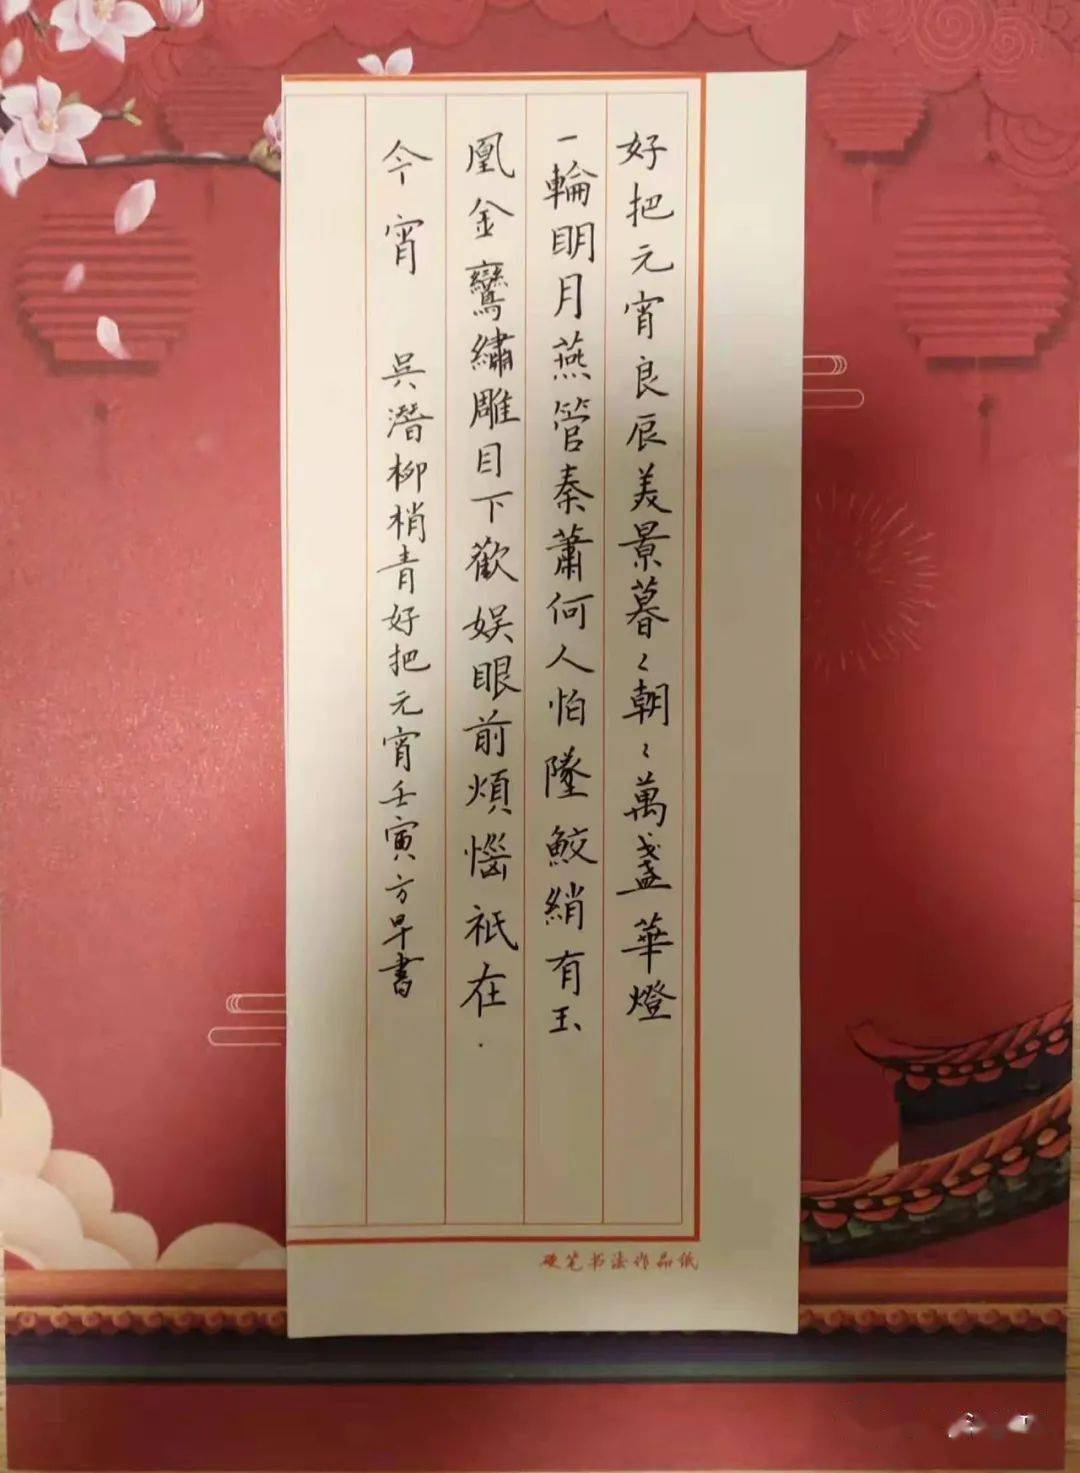 好把元宵良辰美景暮〻朝〻萬盞華燈
一輪明月燕管秦蕭何人怕墜鮫綃有玉
凰金鸞繡雕目下歡娛眼前煩惱祇在
今宵 吳潛柳梢青好把元宵壬寅方早書
硬笔书法作品纸